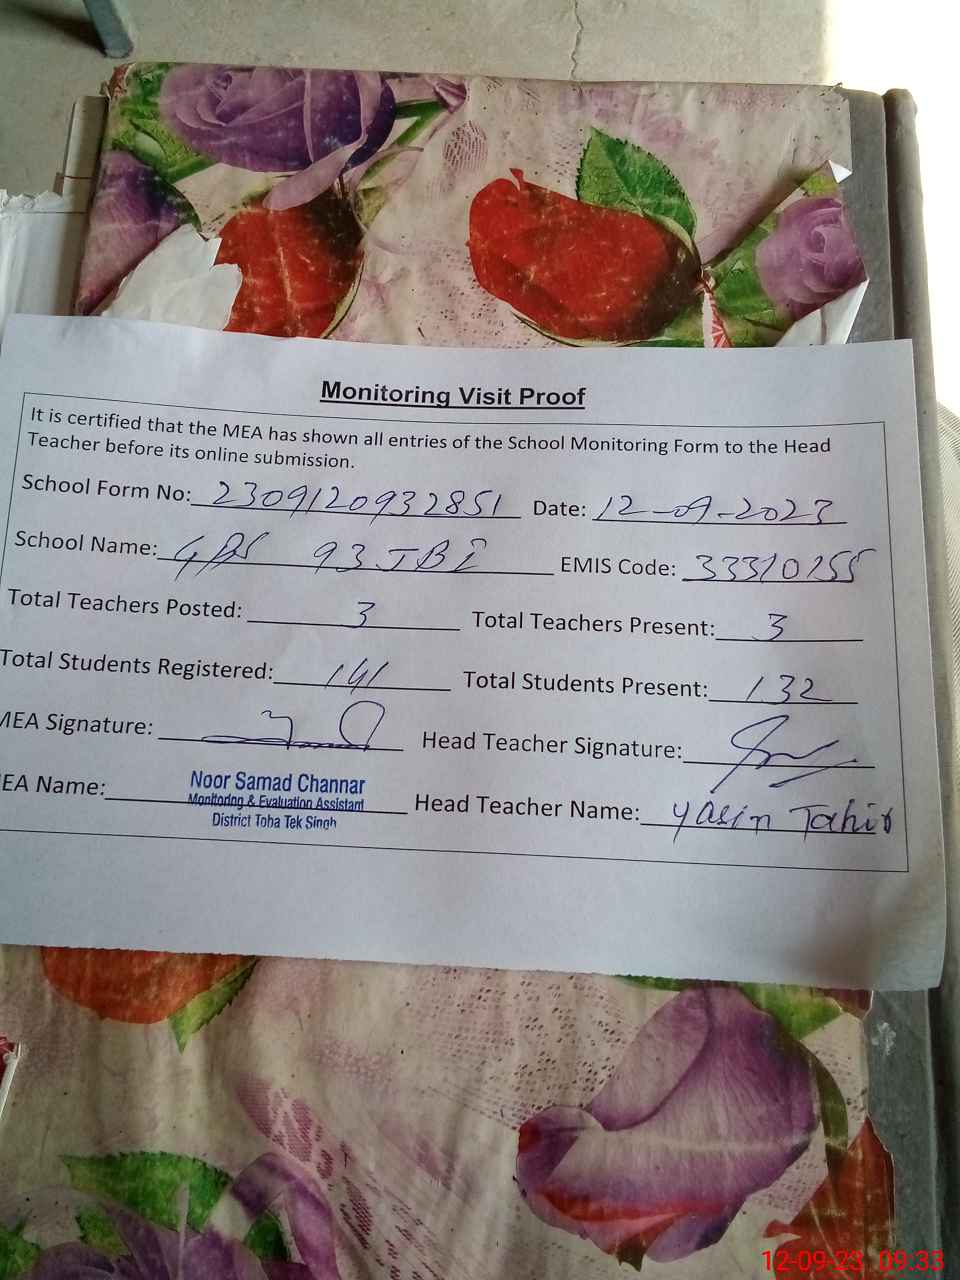 Monitoring Visit Proof
It is certified that the MEA has shown all entries of the School Monitoring Form to the Head
Teacher before its online submission.
School Form No: 2309120932851 Date: 12-09-2023
School Name: GPS 93 JB I EMIS Code: 33310255
Total Teachers Posted: 3 Total Teachers Present: 3
Total Students Registered: 141 Total Students Present: 132
MEA Signature: Head Teacher Signature:
EA Name: Noor Samad Channar Head Teacher Name: Yasin Tahir
Monitoring & Evaluation Assistant
District Toba Tek Singh
12-09-23 09:33